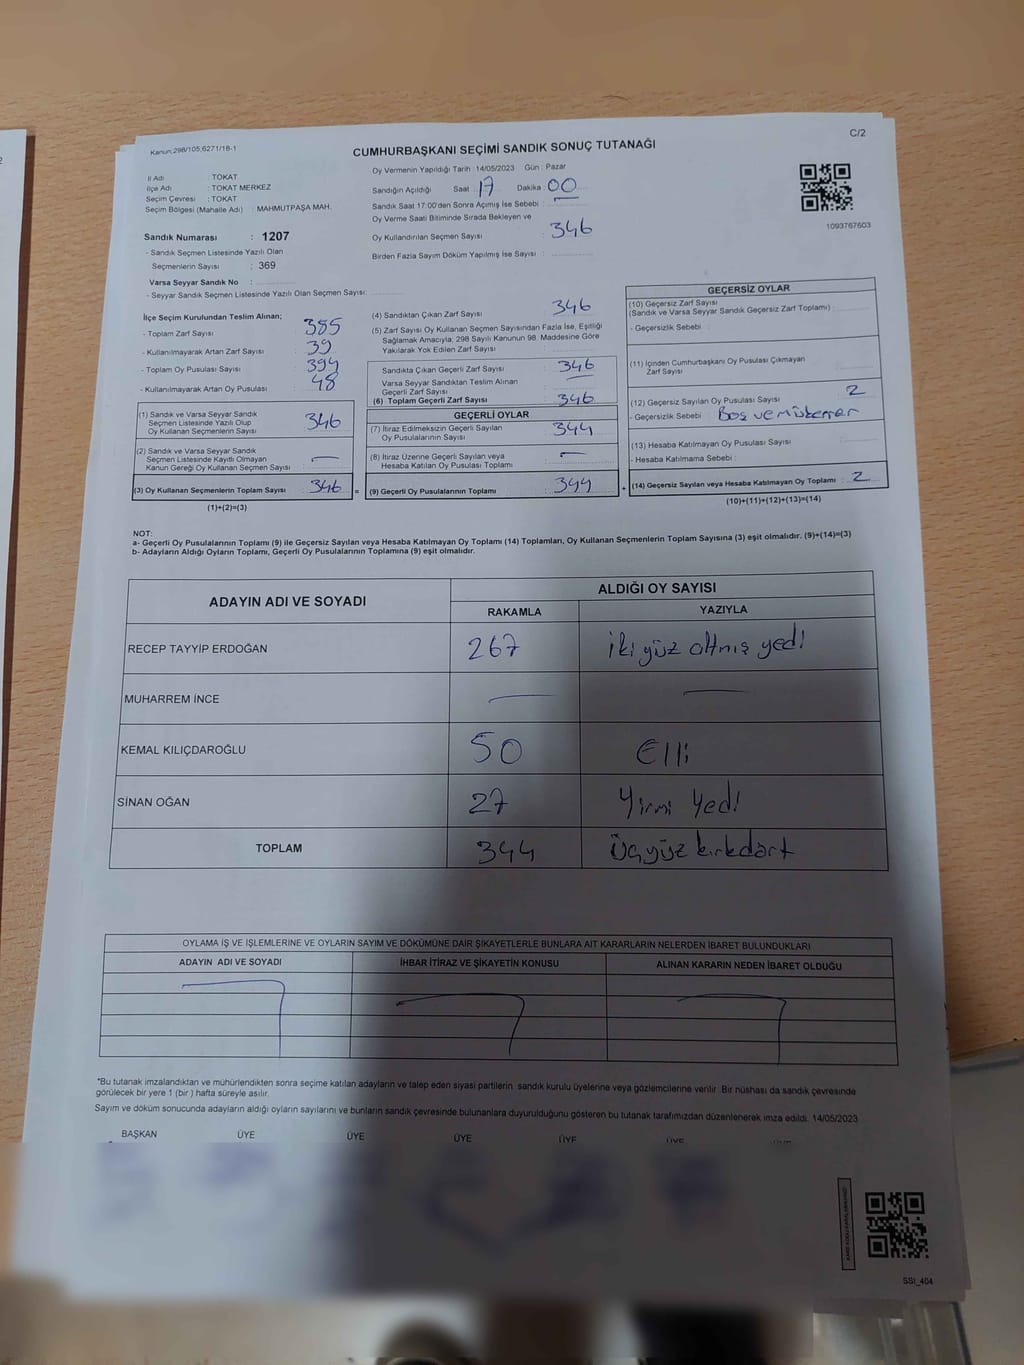 C/2
Kanun:298/105,6271/18-1
CUMHURBAŞKANI SEÇİMİ SANDIK SONUÇ TUTANAĞI
İl Adı : TOKAT
İlçe Adı : TOKAT MERKEZ
Seçim Çevresi : TOKAT
Seçim Bölgesi (Mahalle Adı) : MAHMUTPAŞA MAH.
Sandık Numarası : 1207
- Sandık Seçmen Listesinde Yazılı Olan
Seçmenlerin Sayısı : 369
Varsa Seyyar Sandık No :
- Seyyar Sandık Seçmen Listesinde Yazılı Olan Seçmen Sayısı:
Oy Vermenin Yapıldığı Tarih :14/05/2023 Gün : Pazar
Sandığın Açıldığı Saat : 17 Dakika : 00
Sandık Saat 17:00'den Sonra Açımış İse Sebebi :
Oy Verme Saati Bitiminde Sırada Bekleyen ve
Oy Kullandırılan Seçmen Sayısı : 346
Birden Fazla Sayım Döküm Yapılmış İse Sayısı :
1093767603
İlçe Seçim Kurulundan Teslim Alınan;
- Toplam Zarf Sayısı : 385
- Kullanılmayarak Artan Zarf Sayısı : 39
- Toplam Oy Pusulası Sayısı : 394
- Kullanılmayarak Artan Oy Pusulası : 48
(1) Sandık ve Varsa Seyyar Sandık
Seçmen Listesinde Yazılı Olup
Oy Kullanan Seçmenlerin Sayısı : 346
(2) Sandık ve Varsa Seyyar Sandık
Seçmen Listesinde Kayıtlı Olmayan
Kanun Gereği Oy Kullanan Seçmen Sayısı : —
(3) Oy Kullanan Seçmenlerin Toplam Sayısı : 346 =
(1)+(2)=(3)
(4) Sandıktan Çıkan Zarf Sayısı : 346
(5) Zarf Sayısı Oy Kullanan Seçmen Sayısından Fazla İse, Eşitliği
Sağlamak Amacıyla; 298 Sayılı Kanunun 98. Maddesine Göre
Yakılarak Yok Edilen Zarf Sayısı :
Sandıkta Çıkan Geçerli Zarf Sayısı : 346
Varsa Seyyar Sandıktan Teslim Alınan
Geçerli Zarf Sayısı : —
(6) Toplam Geçerli Zarf Sayısı : 346
GEÇERLİ OYLAR
(7) İtiraz Edilmeksizin Geçerli Sayılan
Oy Pusulalarının Sayısı : 344
(8) İtiraz Üzerine Geçerli Sayılan veya
Hesaba Katılan Oy Pusulası Toplamı : —
(9) Geçerli Oy Pusulalarının Toplamı : 344 +
GEÇERSİZ OYLAR
(10) Geçersiz Zarf Sayısı
(Sandık ve Varsa Seyyar Sandık Geçersiz Zarf Toplamı) :
- Geçersizlik Sebebi :
(11) İçinden Cumhurbaşkanı Oy Pusulası Çıkmayan
Zarf Sayısı :
(12) Geçersiz Sayılan Oy Pusulası Sayısı : 2
- Geçersizlik Sebebi : Boş ve mükerrer
(13) Hesaba Katılmayan Oy Pusulası Sayısı :
- Hesaba Katılmama Sebebi :
(14) Geçersiz Sayılan veya Hesaba Katılmayan Oy Toplamı : 2
(10)+(11)+(12)+(13)=(14)
NOT:
a- Geçerli Oy Pusulalarının Toplamı (9) ile Geçersiz Sayılan veya Hesaba Katılmayan Oy Toplamı (14) Toplamları, Oy Kullanan Seçmenlerin Toplam Sayısına (3) eşit olmalıdır. (9)+(14)=(3)
b- Adayların Aldığı Oyların Toplamı, Geçerli Oy Pusulalarının Toplamına (9) eşit olmalıdır.
ADAYIN ADI VE SOYADI
ALDIĞI OY SAYISI
RAKAMLA YAZIYLA
RECEP TAYYİP ERDOĞAN 267 iki yüz altmış yedi
MUHARREM İNCE — —
KEMAL KILIÇDAROĞLU 50 Elli
SİNAN OĞAN 27 Yirmi Yedi
TOPLAM 344 Üçyüz kırkdört
OYLAMA İŞ VE İŞLEMLERİNE VE OYLARIN SAYIM VE DÖKÜMÜNE DAİR ŞİKAYETLERLE BUNLARA AİT KARARLARIN NELERDEN İBARET BULUNDUKLARI
ADAYIN ADI VE SOYADI İHBAR İTİRAZ VE ŞİKAYETİN KONUSU ALINAN KARARIN NEDEN İBARET OLDUĞU
*Bu tutanak imzalandıktan ve mühürlendikten sonra seçime katılan adayların ve talep eden siyasi partilerin sandık kurulu üyelerine veya gözlemcilerine verilir. Bir nüshası da sandık çevresinde
görülecek bir yere 1 (bir ) hafta süreyle asılır.
Sayım ve döküm sonucunda adayların aldığı oyların sayılarını ve bunların sandık çevresinde bulunanlara duyurulduğunu gösteren bu tutanak tarafımızdan düzenlenerek imza edildi. 14/05/2023
BAŞKAN ÜYE ÜYE ÜYE ÜYE ÜYE
SSI_404